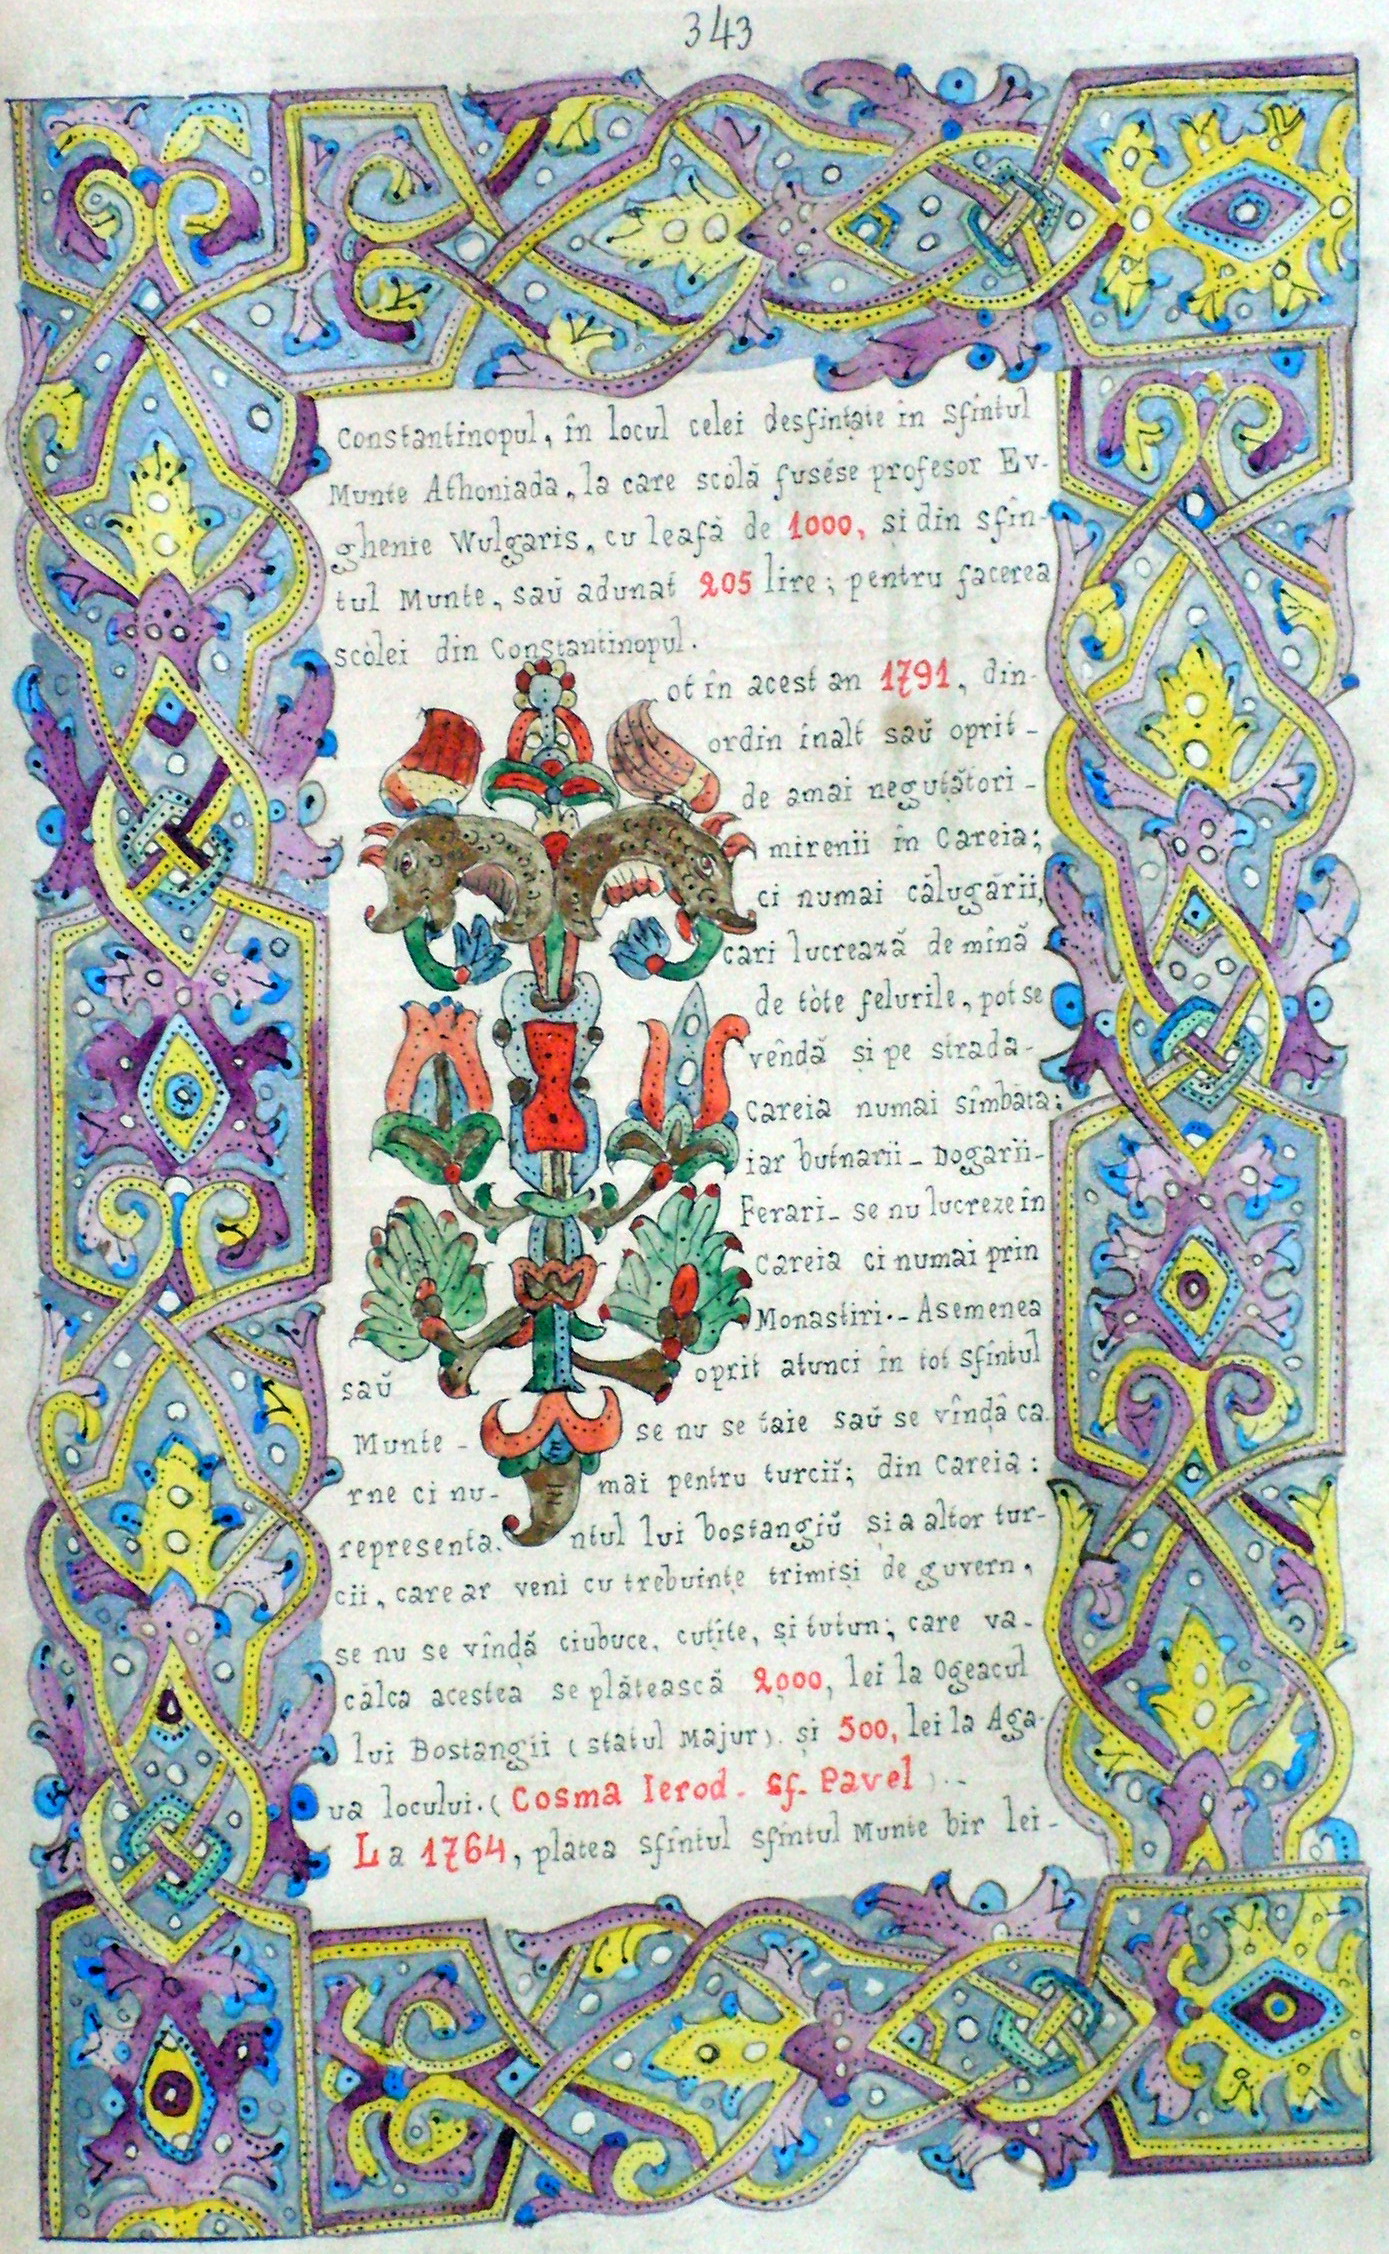 343
Constantinopul, în locul celei desfințate în sfîntul
Munte Athoniada, la care scólă fusése profesor Ev-
ghenie Wulgaris, cu leafă de 1000, și din sfîn-
tul Munte, saŭ adunat 205 lire; pentru facerea
scòlei din Constantinopul.
ot în acest an 1791, din-
ordin înalt saŭ oprit-
de amai neguțători-
mirenii în Careia;
ci numai călugării,
cari lucrează de mînă
de tòte felurile, pot se
vêndă și pe strada-
Careia numai sîmbăta;
iar butnarii - Dogarii-
Ferari - se nu lucreze în
Careia ci numai prin
Monastiri. - Asemenea
saŭ oprit atunci în tot sfîntul
Munte - se nu se taie saŭ se vîndă ca
rne ci nu- mai pentru turciĭ; din Careia:
representa. ntul lui bostangiŭ și a altor tur-
cii, care ar veni cu trebuințe trimiși de guvern,
se nu se vîndă ciubuce, cuțite, și tutun; care va-
călca acestea se plătească 2000, lei la Ogeacul
lui Bostangii (statul Majur). și 500, lei la Aga-
ua locului. (Cosma Ierod - sf. Pavel)..
La 1764, platea sfîntul sfîntul Munte bir lei-